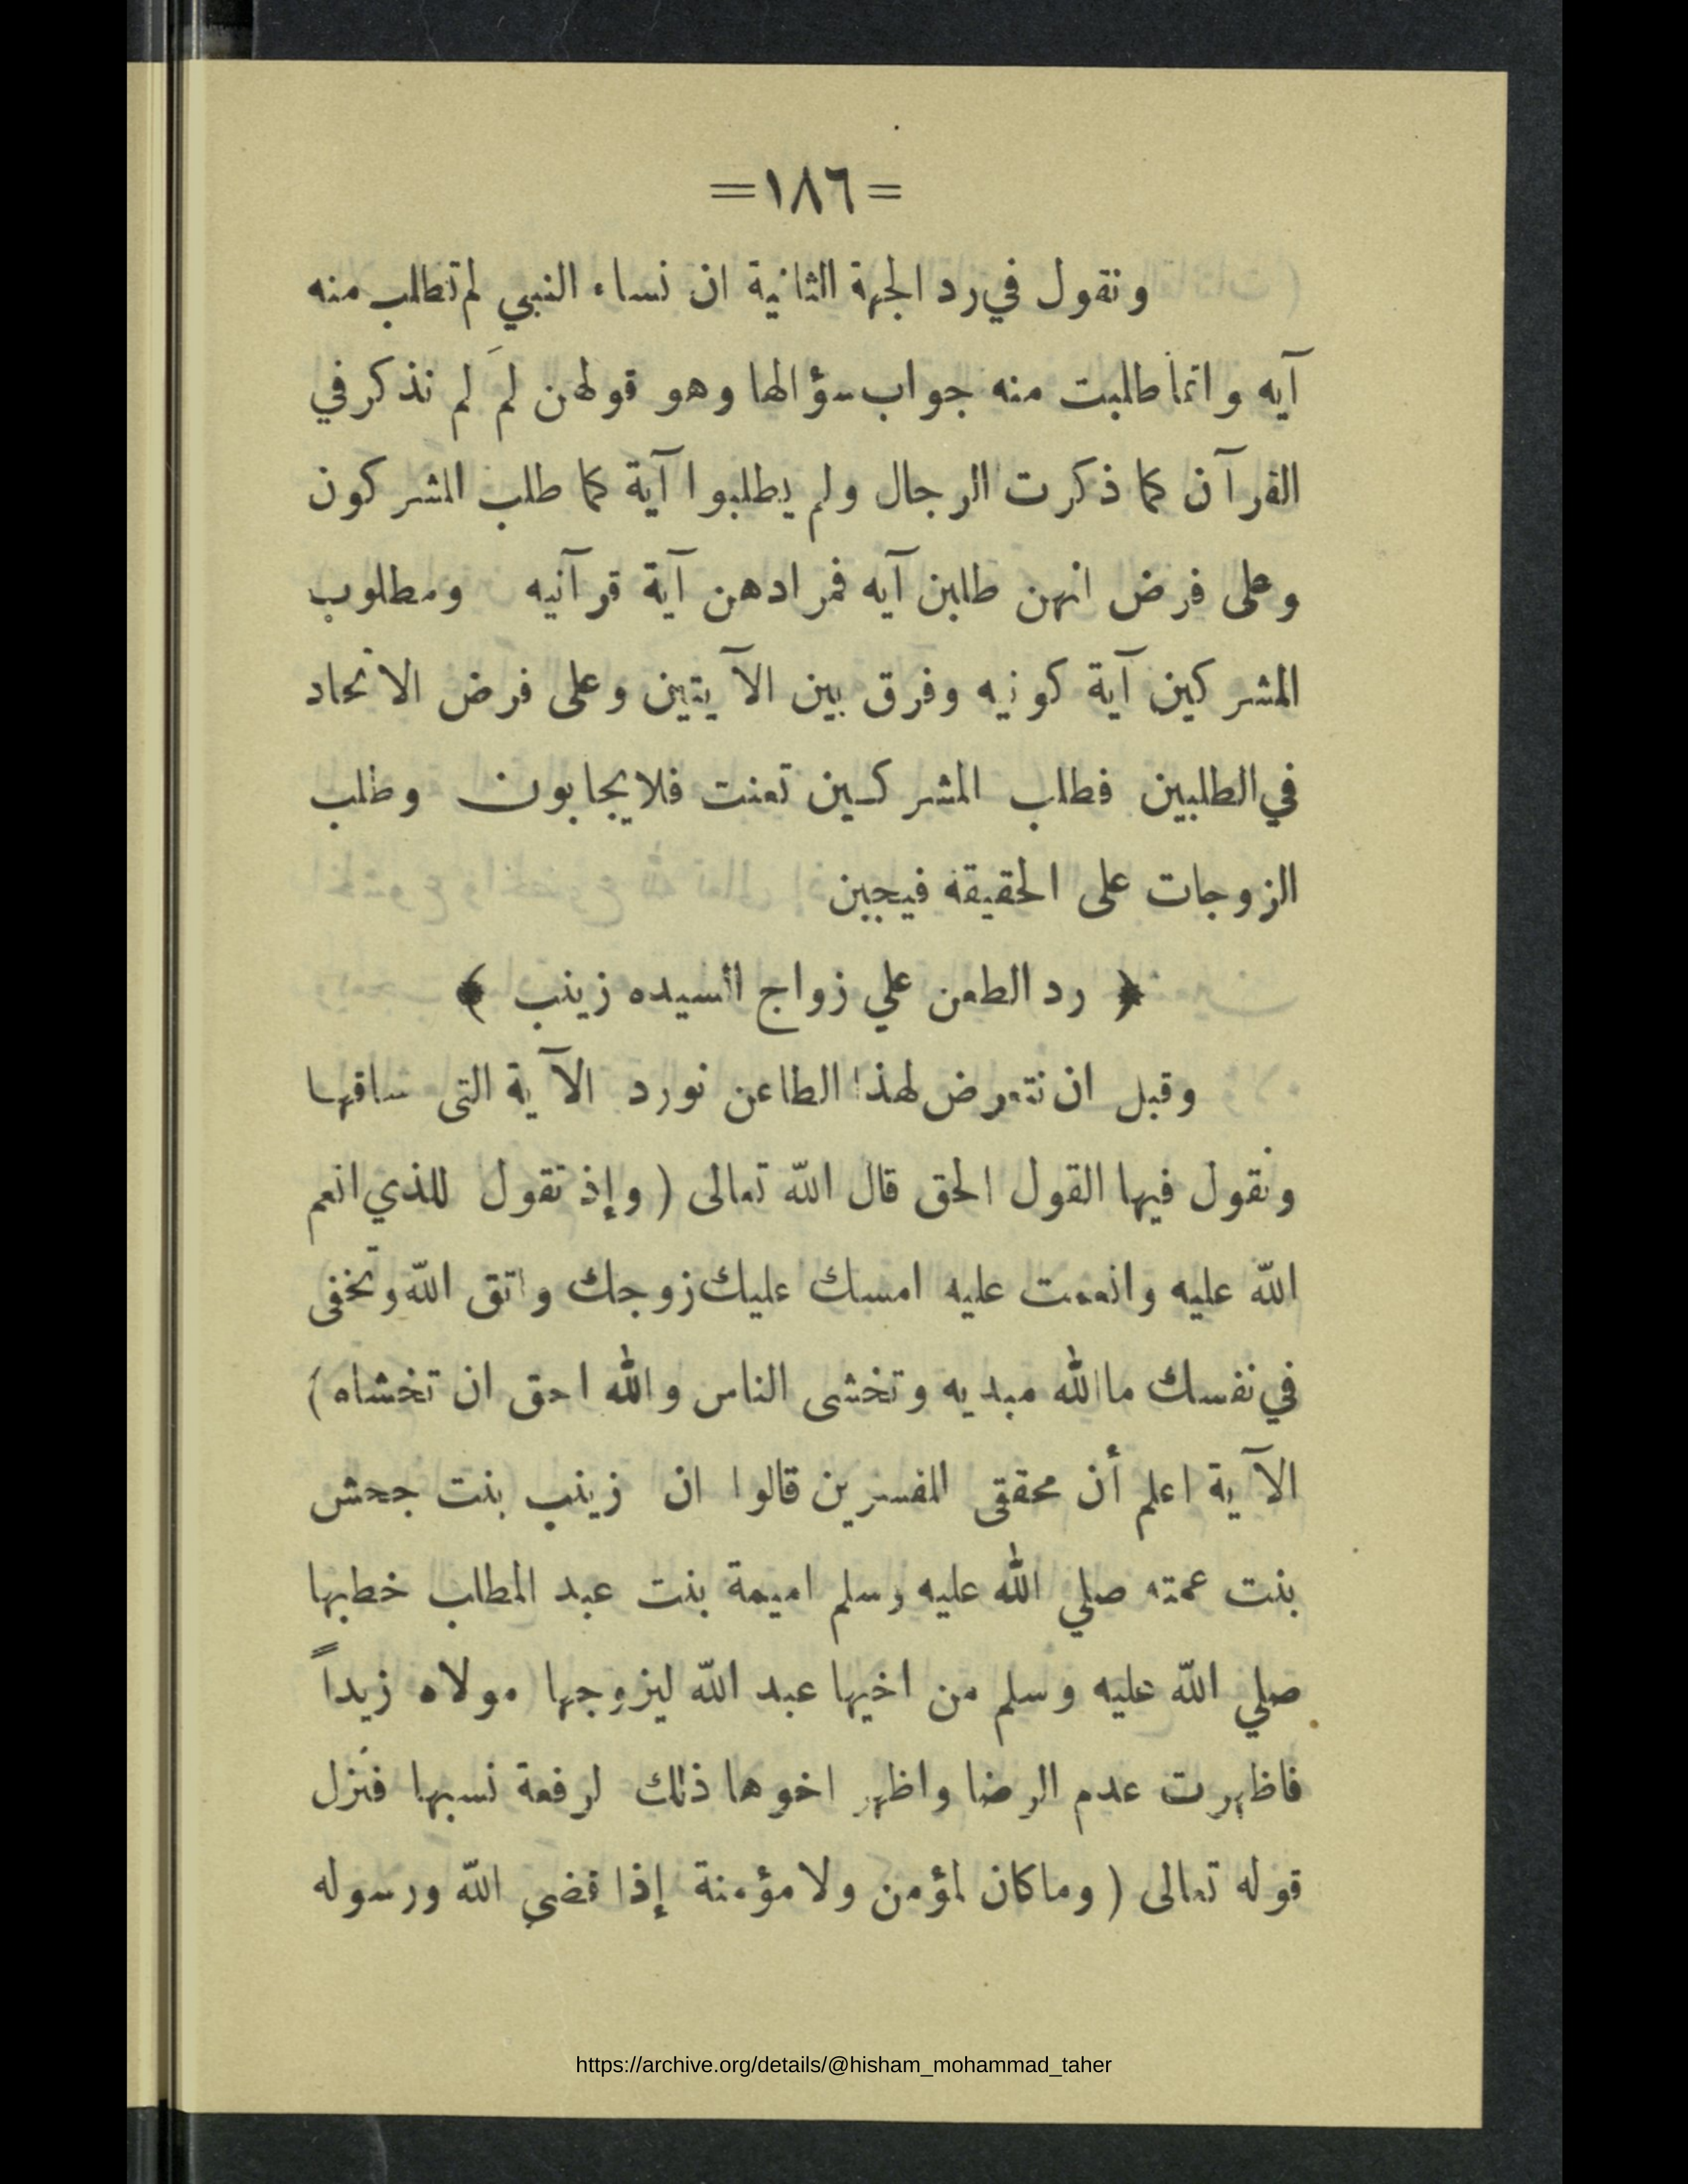 =١٨٦=
ونقول في رد الجهة الثانية ان نساء النبي لم تطلب منه
آيه وانما طلبت منه جواب سؤالها وهو قولهن لمَ لم نذكر في
القرآن كما ذكرت الرجال ولم يطلبوا آية كما طلب المشركون
وعلى فرض انهن طلبن آيه فمرادهن آية قرآنيه ومطلوب
المشركين آية كونيه وفرق بين الآيتين وعلى فرض الاتحاد
في الطلبين فطلب المشركين تعنت فلا يجابون وطلب
الزوجات على الحقيقة فيجبن
﴿ رد الطعن علي زواج السيده زينب ﴾
وقبل ان نتعرض لهذا الطاعن نورد الآية التى ساقها
ونقول فيها القول الحق قال الله تعالى ( وإذ تقول للذي انعم
الله عليه وانعمت عليه امسك عليك زوجك واتق الله وتخفى
في نفسك ما الله مبديه وتخشى الناس والله احق ان تخشاه )
الآية اعلم أن محققى المفسرين قالوا ان زينب بنت جحش
بنت عمته صلي الله عليه وسلم اميمة بنت عبد المطلب خطبها
صلي الله عليه وسلم من اخيها عبد الله ليزوجها مولاه زيداً
فاظهرت عدم الرضا واظهر اخوها ذلك لرفعة نسبها فنزل
قوله تعالى ( وما كان لمؤمن ولا مؤمنة إذا قضي الله ورسوله
https://archive.org/details/@hisham_mohammad_taher